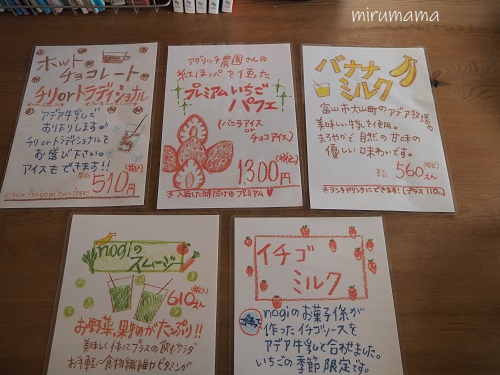 mirumama
ホット
チョコレート
チリorトラディショナル
アデア牛乳で
お作りします
チリorトラディショナルを
お選び下さい
アイスもできます!!
510円
(税込)
アグリッチ農園さんの
紅ほっぺを使った
プレミアムいちご
パフェ
(バニラアイス
or
チョコアイス)
1300円
(税込)
バナナ
ミルク
富山市大山町のアデア牧場の
美味しい牛乳を使用。
まろやかで自然の甘味の
優しい口味わいです。
560えん
(税込)
※ランチドリンクにできます!(プラス110円)
nogiの
スムージー
610えん
(税込)
お野菜、果物がたっぷり!!
美味しく体にプラスの飲むサラダ
お手軽に食物繊維やビタミンが
イチゴ
ミルク
nogiのお菓子係が
作ったイチゴソースを
アデア牛乳と合わせました。
いちごの季節限定です。